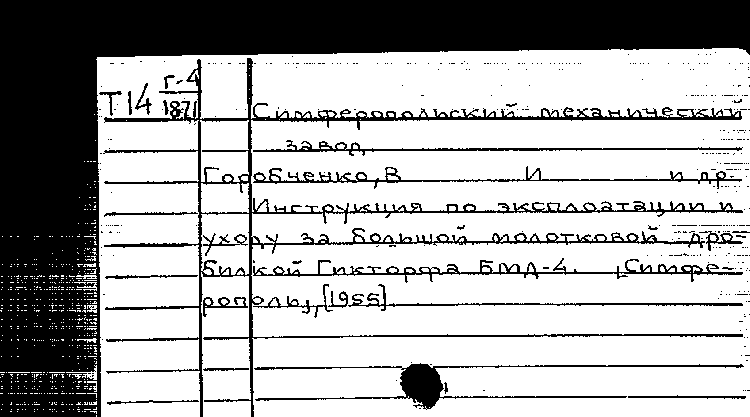 Т14 Г-4
1871
Симферопольский механический
завод.
Горобченко, В И и др.
Инструкция по эксплоатации и
уходу за большой молотковой дро-
билкой Гикторфа БМД-4. [Симфе-
рополь], [1955].